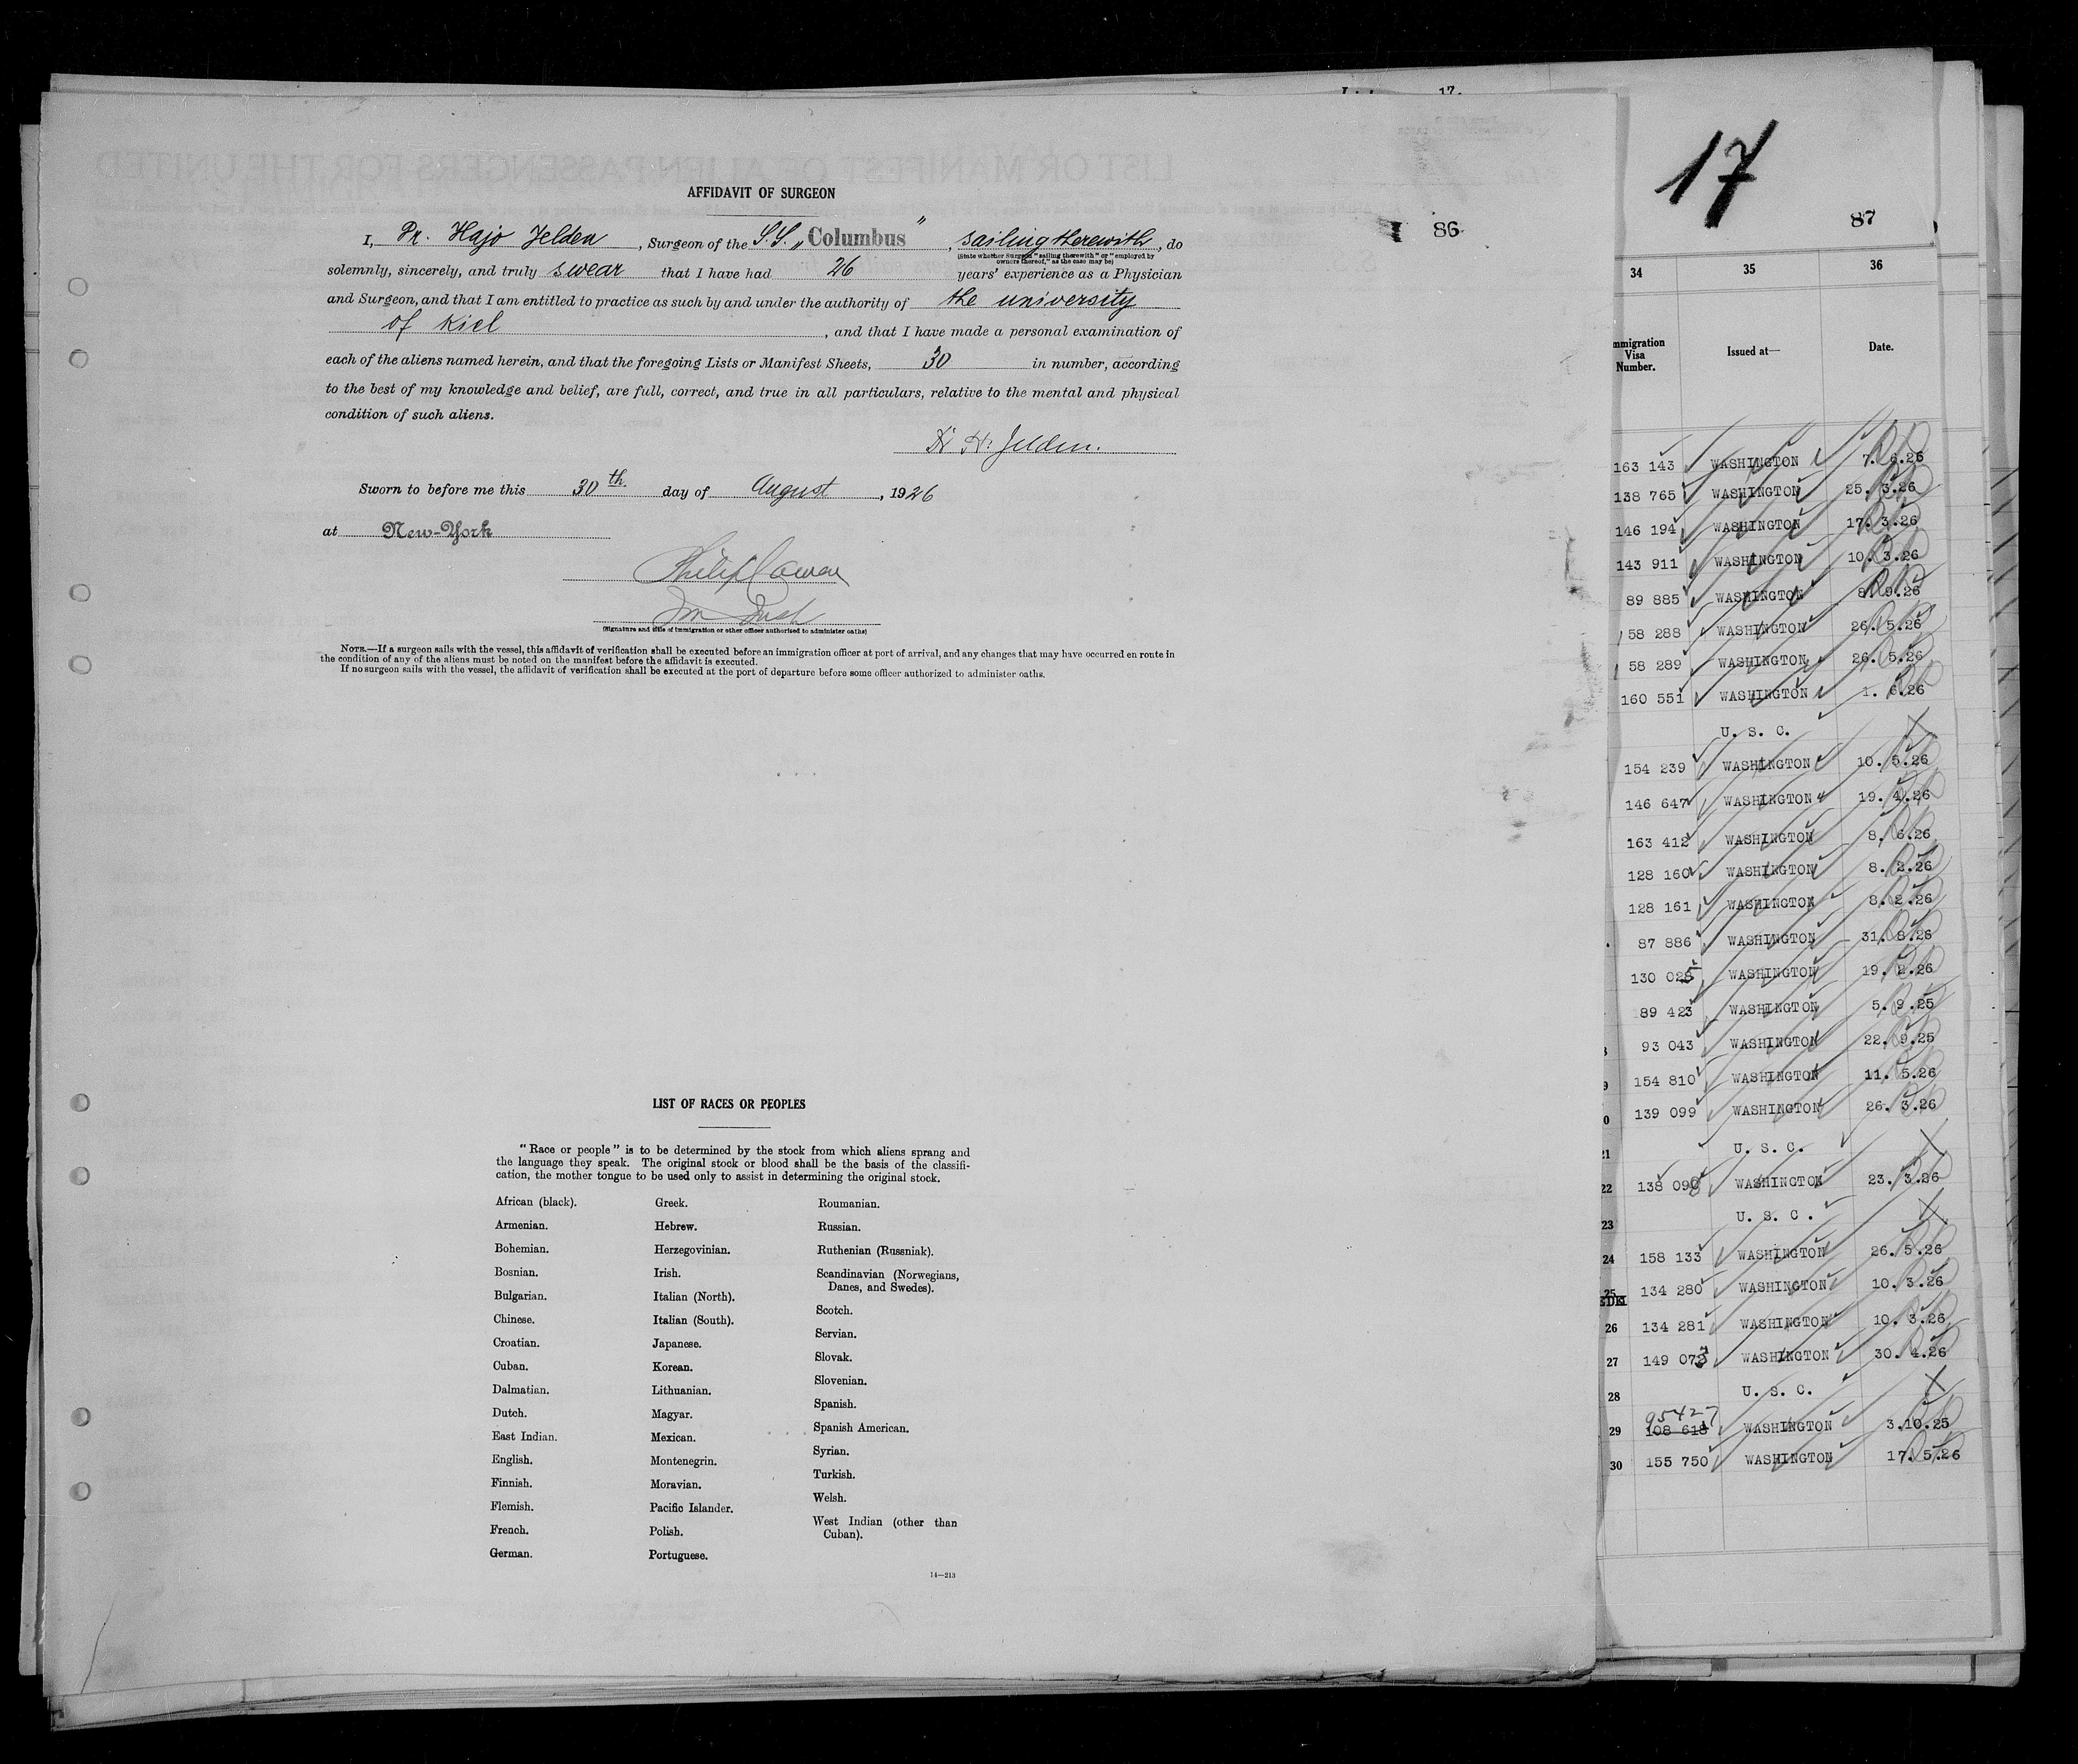 AFFIDAVIT OF SURGEON
I, Dr. Hajo Jelden, Surgeon of the S.S. „Columbus", sailing therewith, do
(State whether Surgeon "sailing therewith" or "employed by
owners thereof," as the case may be)
solemnly, sincerely, and truly swear that I have had 26 years' experience as a Physician
and Surgeon, and that I am entitled to practice as such by and under the authority of the university
of Kiel, and that I have made a personal examination of
each of the aliens named herein, and that the foregoing Lists or Manifest Sheets, 30 in number, according
to the best of my knowledge and belief, are full, correct, and true in all particulars, relative to the mental and physical
condition of such aliens.
Dr H. Jelden.
Sworn to before me this 30th day of August, 1926
at New-York
Philip Cowen
(Signature and title of immigration or other officer authorized to administer oaths)
NOTE.—If a surgeon sails with the vessel, this affidavit of verification shall be executed before an immigration officer at port of arrival, and any changes that may have occurred en route in
the condition of any of the aliens must be noted on the manifest before the affidavit is executed.
If no surgeon sails with the vessel, the affidavit of verification shall be executed at the port of departure before some officer authorized to administer oaths.
LIST OF RACES OR PEOPLES
"Race or people" is to be determined by the stock from which aliens sprang and
the language they speak. The original stock or blood shall be the basis of the classifi-
cation, the mother tongue to be used only to assist in determining the original stock.
African (black).
Armenian.
Bohemian.
Bosnian.
Bulgarian.
Chinese.
Croatian.
Cuban.
Dalmatian.
Dutch.
East Indian.
English.
Finnish.
Flemish.
French.
German.
Greek.
Hebrew.
Herzegovinian.
Irish.
Italian (North).
Italian (South).
Japanese.
Korean.
Lithuanian.
Magyar.
Mexican.
Montenegrin.
Moravian.
Pacific Islander.
Polish.
Portuguese.
Roumanian.
Russian.
Ruthenian (Russniak).
Scandinavian (Norwegians,
Danes, and Swedes).
Scotch.
Servian.
Slovak.
Slovenian.
Spanish.
Spanish American.
Syrian.
Turkish.
Welsh.
West Indian (other than
Cuban).
14—213
86
17
87
34 35 36
mmigration
Visa
Number.
Issued at—
Date.
163 143 WASHINGTON 7. 6.26
138 765 WASHINGTON 25. 3.26
146 194 WASHINGTON 17. 3.26
143 911 WASHINGTON 10. 3.26
89 885 WASHINGTON 8. 9.26
58 288 WASHINGTON 26. 5.26
58 289 WASHINGTON 26. 5.26
160 551 WASHINGTON 1. 6.26
U. S. C.
154 239 WASHINGTON 10. 5.26
146 647 WASHINGTON 19. 4.26
163 412 WASHINGTON 8. 6.26
128 160 WASHINGTON 8. 2.26
128 161 WASHINGTON 8. 2.26
87 886 WASHINGTON 31. 8.26
130 025 WASHINGTON 19. 2.26
89 423 WASHINGTON 5. 9.25
93 043 WASHINGTON 22. 9.25
9 154 810 WASHINGTON 11. 5.26
0 139 099 WASHINGTON 26. 3.26
21 U. S. C.
22 138 098 WASHINGTON 23. 3.26
23 U. S. C.
24 158 133 WASHINGTON 26. 5.26
25 134 280 WASHINGTON 10. 3.26
26 134 281 WASHINGTON 10. 3.26
27 149 073 WASHINGTON 30. 4.26
28 U. S. C.
95427
29 108 618 WASHINGTON 3.10.25
30 155 750 WASHINGTON 17. 5.26